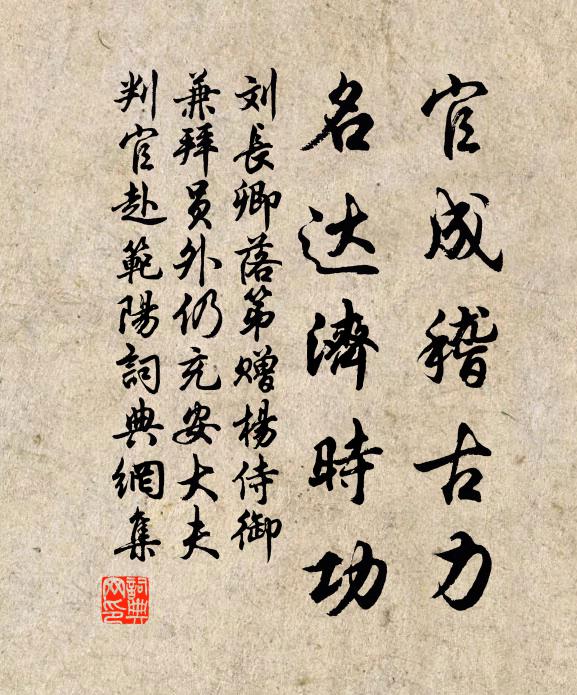 官成稽古力
名达濟時功
刘長卿落第赠楊侍御
兼拜員外仍充安大夫
判官赴範陽詞典網集